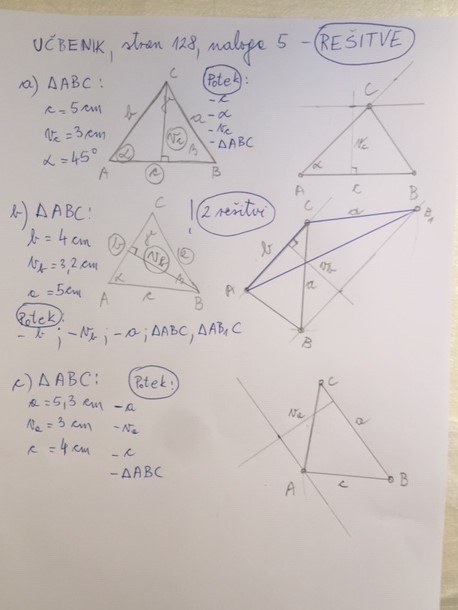 UČBENIK, stran 128, naloga 5 - REŠITVE
a) ΔABC:
c = 5 cm
vc = 3 cm
α = 45°
C
b
γ
a
vc
α
β
A
c
B
Potek:
- c
- α
- vc
- ΔABC
C
vc
α
A
c
B
b) ΔABC:
b = 4 cm
vb = 3,2 cm
a = 5 cm
C
b
γ
a
vb
α
A
c
B
! 2 rešitvi
C
a
B1
b
vb
a
A
B
Potek:
- b ; - vb ; - a ; ΔABC, ΔAB1C
c) ΔABC:
a = 5,3 cm
va = 3 cm
c = 4 cm
Potek:
- a
- va
- c
- ΔABC
C
va
a
A
c
B